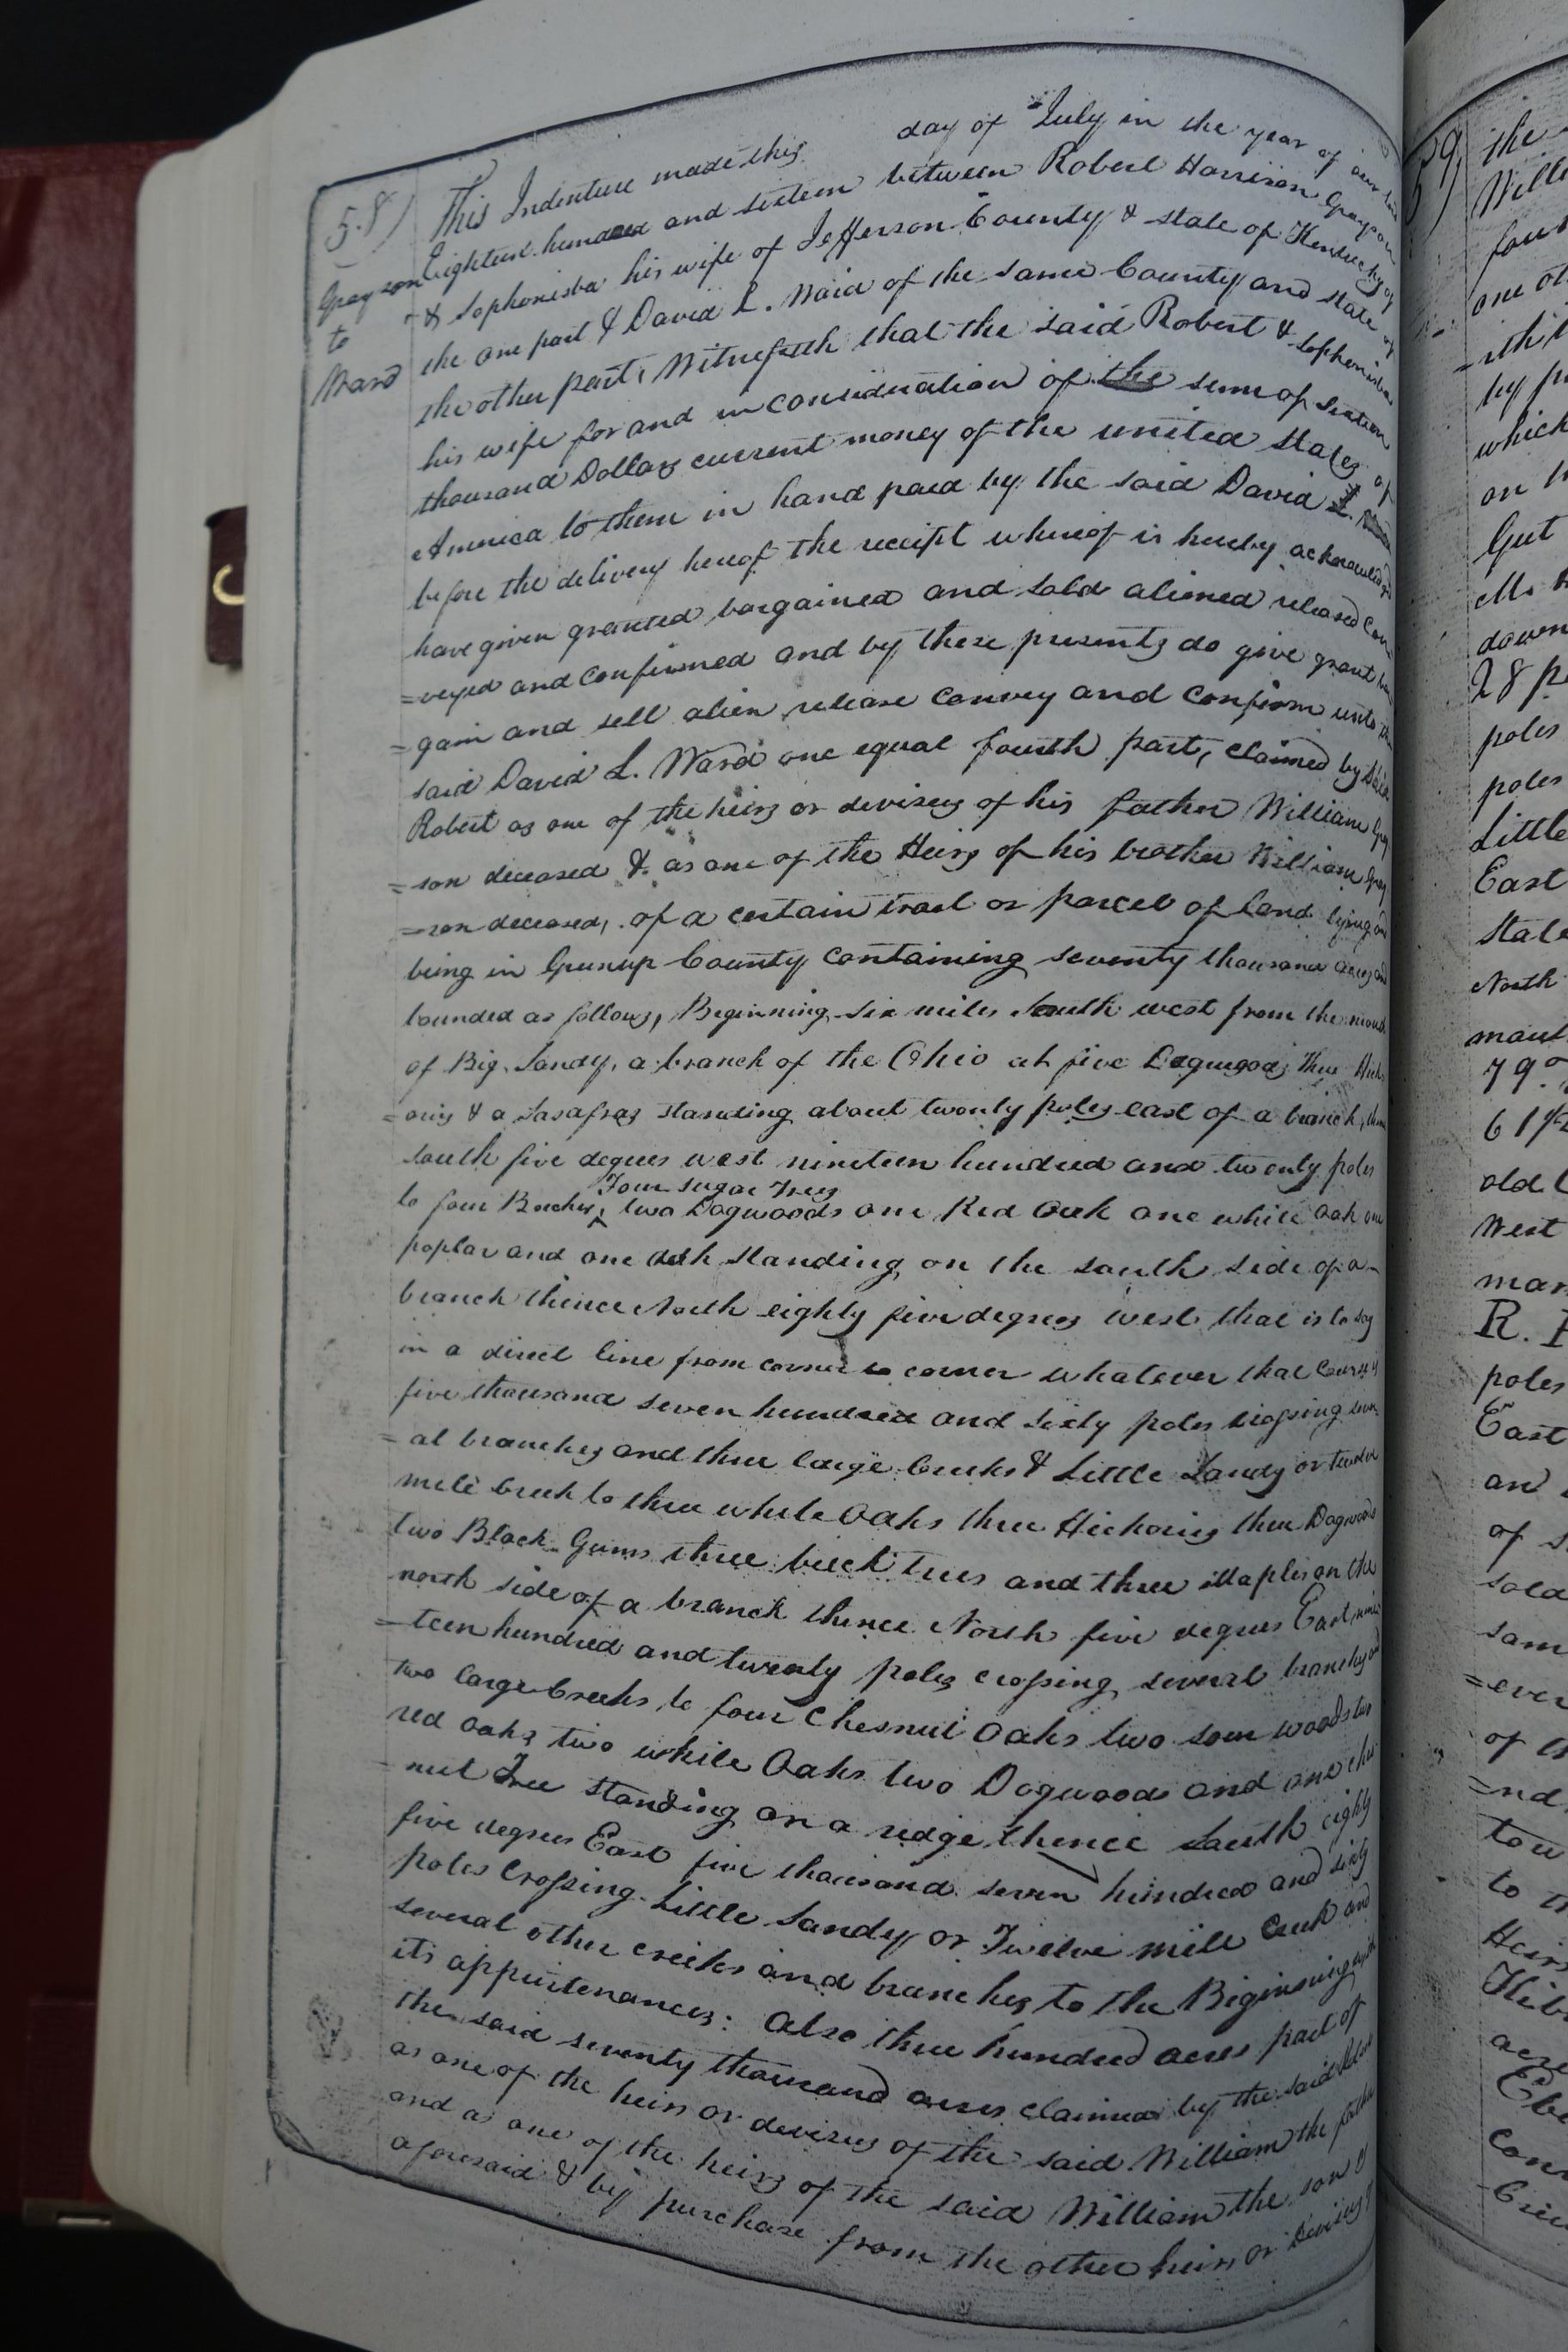 58)
Grayson
to
Ward
This Indenture made this day of July in the year of our Lord
Eighteen hundred and sixteen between Robert Harrison Grayson
& Sophonisba his wife of Jefferson County & state of Kentucky of
the one part & David L. Ward of the same County and state of
the other part, Witnesseth that the said Robert & Sophonisba
his wife for and in consideration of the sum of sixteen
thousand Dollars current money of the united States of
America to them in hand paid by the said David L.
before the delivery hereof the receipt whereof is hereby acknowledged
have given granted bargained and sold aliened released con
=veyed and confirmed and by these presents do give grant bar
=gain and sell alien release convey and confirm unto the
said David L. Ward one equal fourth part, claimed by said
Robert as one of the heirs or devisees of his father William Gray
=son deceased & as one of the Heirs of his brother William Gray
=son deceased, of a certain tract or parcel of land lying and
being in Greenup County containing seventy thousand acres and
bounded as follows, Beginning six miles South west from the mouth
of Big Sandy, a branch of the Ohio at five Dogwoods three Hick
=orys & a Sasafras standing about twenty poles east of a branch, thence
south five degrees west nineteen hundred and twenty poles
Four sugar Trees
to four Beeches, two Dogwoods one Red Oak one white oak one
poplar and one ash standing on the south side of a
branch thence North eighty five degrees west that is to say
in a direct line from corner to corner whatever that Course is
five thousand seven hundred and sixty poles crossing sever
=al branches and three large Creeks & Little Sandy or twelve
mile Creek to three white Oaks three Hickories three Dogwoods
two Black Gums three beech trees and three Maples on the
north side of a branch thence North five degrees East nine
=teen hundred and twenty poles crossing several branches and
two large Creeks to four Chesnut Oaks two sour woods two
red oaks two white Oaks two Dogwoods and one ches
-nut Tree standing on a ridge thence South eighty
five degrees East five thousand seven hundred and sixty
poles Crossing Little Sandy or Twelve mile Creek and
several other creeks and branches to the Biginning with
its appurtenances: Also three hundred acres part of
the said seventy thousand acres claimed by the said Robert
as one of the heirs or devisees of the said William the father
and as one of the heirs of the said William the son
aforesaid & by purchase from the other heirs or devisees
59)
the
Willi
four
one ot
by p
which
on
Gut
down
28 po
poles
poles
Little
East
State
North
79°
61
old
West
man
R.
poles
East
and
of s
sold
sam
=ever
of th
=nd
tow
to th
Heirs
acre